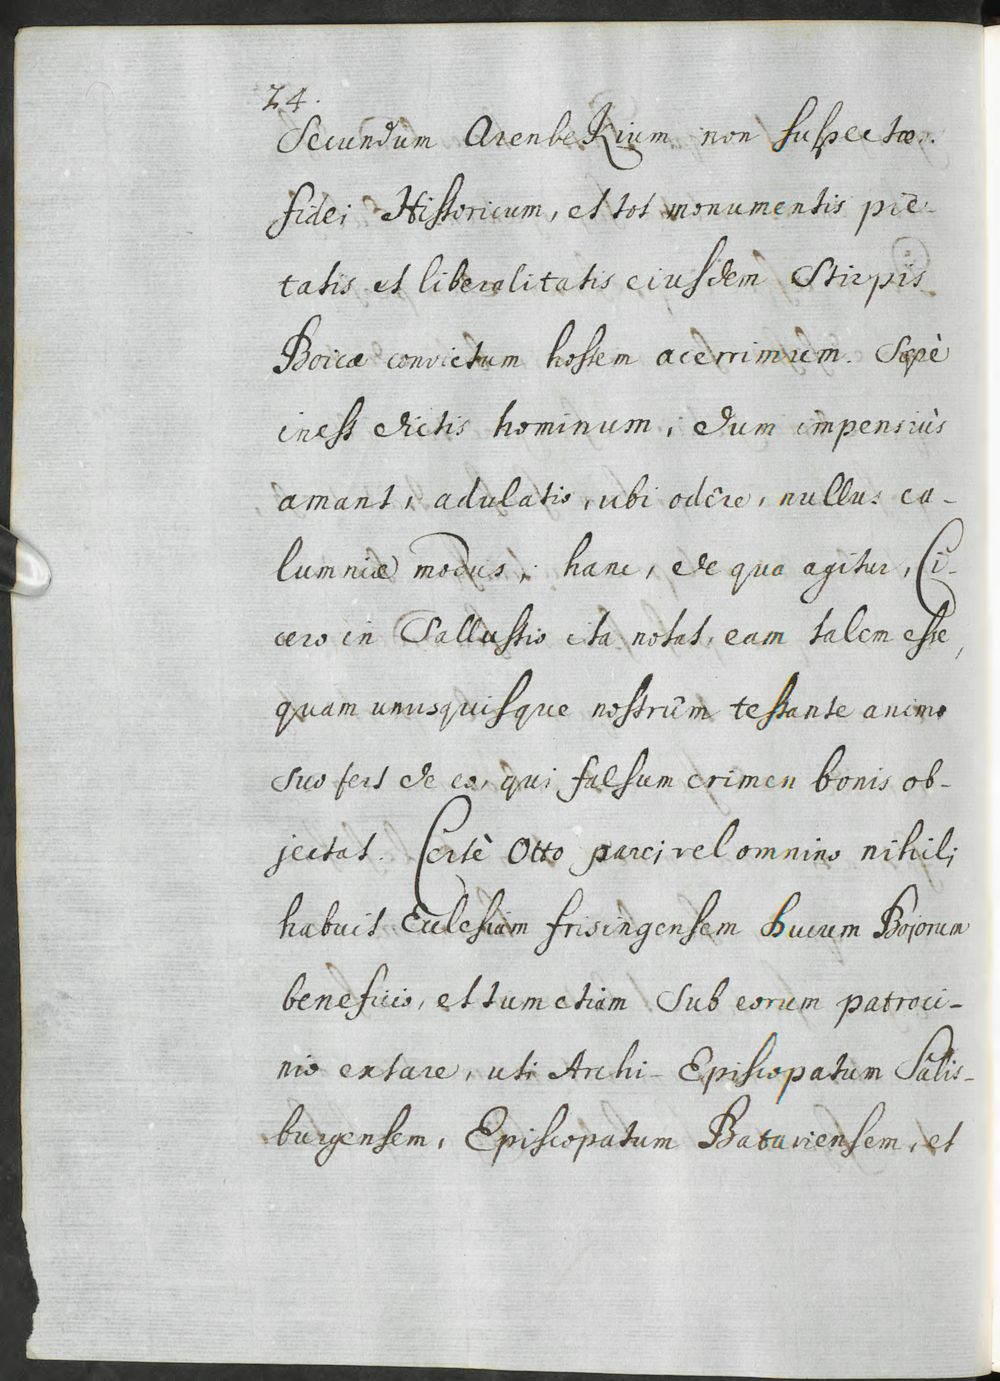 24.
Secundum ArenbeKium non suspectæ
fidei Historicum, et tot monumentis pie-
tatis et liberalitatis eiusdem Stirpis
Boicæ convictum hostem acerrimum. Sæpè
inest dictis hominum, dum impensiùs
amant, adulatio, ubi odêre, nullus ca-
lumniæ modus; hanc, de qua agitur, Ci-
cero in Sallustio ita notat, eam talem esse,
quam unusquisque nostrûm testante animo
suo fert de eo, qui falsum crimen bonis ob-
jectat. Certè Otto parci vel omnino nihili
habuit Eclesiam frisingensem Ducum Bojorum
beneficio, et tum etiam sub eorum patroci-
nio extare, uti Archi-Episcopatum Salis-
burgensem, Episcopatum Bataviensem, et